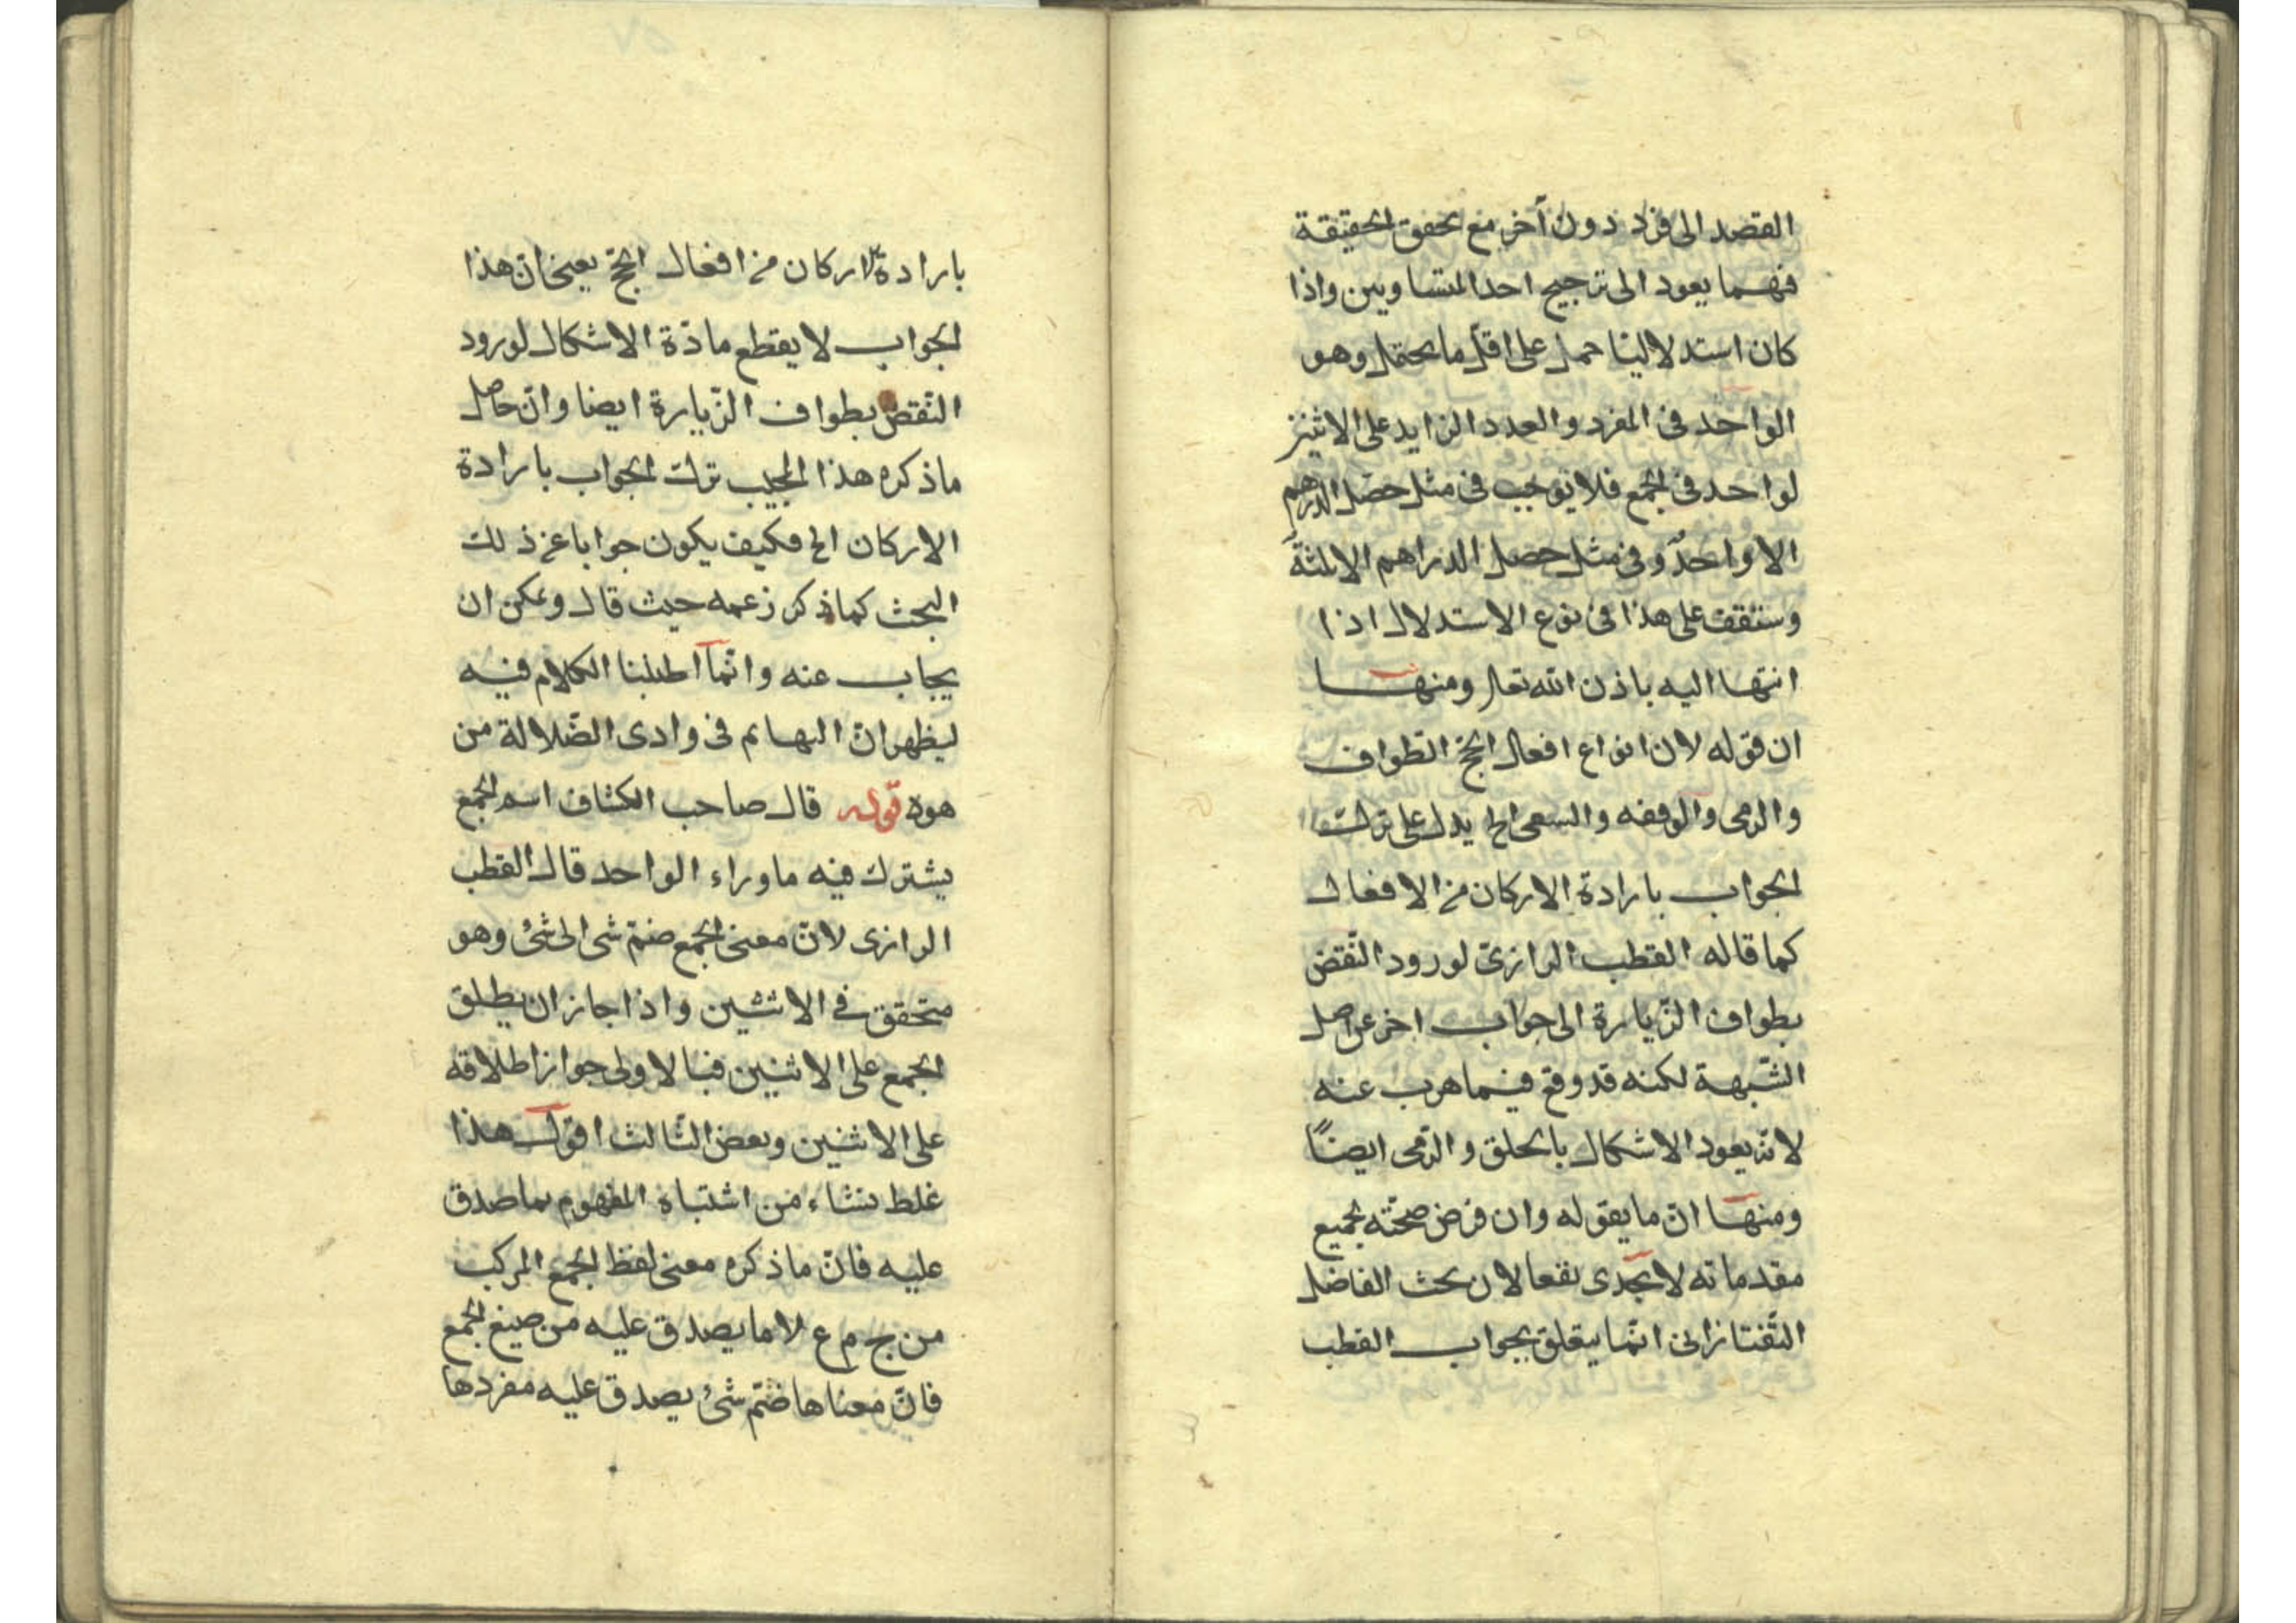 القصد الى فرد دون آخر مع تحقق الحقيقة
فيهما يعود الى ترجيح احد المتساويين واذا
كان استدلاليّا حمل على اقلّ ما يحتمل وهو
الواحد فى المفرد والعدد الزايد على الاثنين
لواحد فى الجمع فلا يوجب فى مثل حصل الدرهم
الا واحدٌ وفى مثل حصل الدراهم الا ثلثةً
وستقف على هذا فى نوع الاستدلال اذا
انتها اليه باذن الله تعالى ومنهـــا
ان قوله لان انواع افعال الحجّ الطواف
والرمى والوقفه والسعى الخ يدل على ترك
الجواب بارادة الاركان من الافعال
كما قاله القطب الرازىّ لورود النّقض
بطواف الزّيارة الى جواب اخر عن اصل
الشّبهة لكنه قد وقع فيما هرب عنه
لانّه يعود الاشكال بالحلق والرّمى ايضاً
ومنهـا انّ ما يقوله وان فرض صحّته بجميع
مقدماته لا يجدى نفعا لان بحث الفاضل
التّفتازانى انّما يتعلق بجواب القطب
بارادة الاركان من افعال الحجّ يعنى ان هذا
الجواب لا يقطع مادّة الاشكال لورود
النّقض بطواف الزّيارة ايضا وانّ حاصل
ماذكره هذا المجيب ترك الجواب بارادة
الاركان الخ فكيف يكون جوابا عن ذلك
البحث كما ذكر زعمه حيث قال ويمكن ان
يجاب عنه وانّما اطنبنا الكلام فيه
ليظهر انّ الهايم فى وادى الضّلالة من
هوه قوله قال صاحب الكشاف اسم الجمع
يشترك فيه ماوراء الواحد قال القطب
الرازى لانّ معنى الجمع ضمّ شى الى شئ وهو
متحقق فى الاثنين واذا جاز ان يطلق
الجمع على الاثنين فبالاولى جواز اطلاقه
على الاثنين وبعض الثّالث اقول هذا
غلط نشاء من اشتباه المفهوم بما صدق
عليه فانّ ماذكره معنى لفظ الجمع المركب
من ج م ع لا ما يصدق عليه من صيغ الجمع
فانّ معناها ضمّ شئ يصدق عليه مفردها